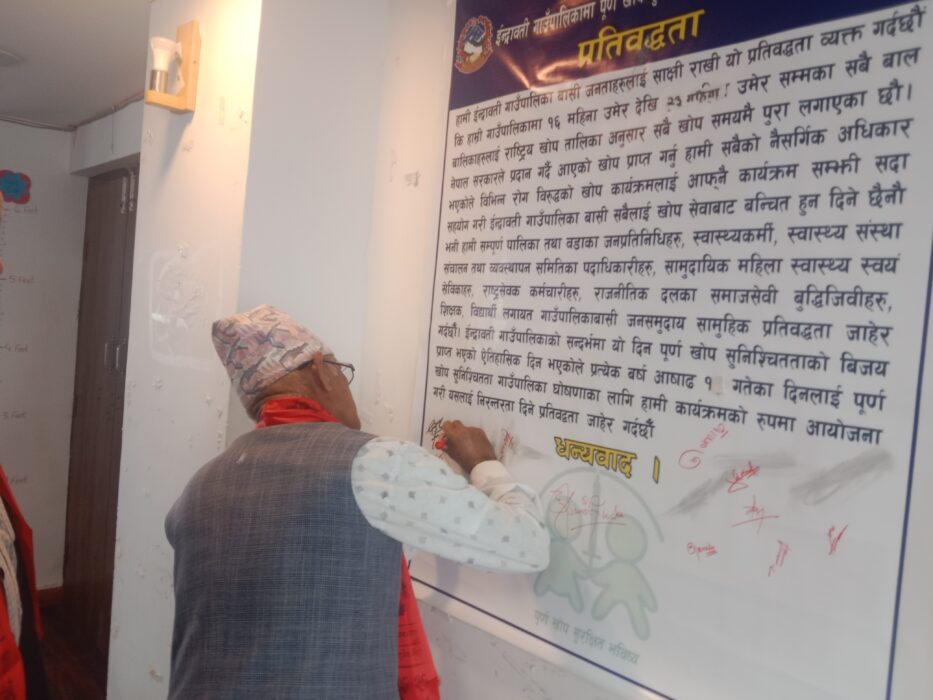 इन्द्रावती गाउँपालिकामा पूर्ण खोप
प्रतिवद्धता
हामी ईन्द्रावती गाउँपालिका बासी जनताहरुलाई साक्षी राखी यो प्रतिवद्धता व्यक्त गर्दछौं
कि हाम्रो गाउँपालिकामा १६ महिना उमेर देखि २३ महिना उमेर सम्मका सबै बाल
बालिकाहरुलाई राष्ट्रिय खोप तालिका अनुसार सबै खोप समयमै पुरा लगाएका छौ।
नेपाल सरकारले प्रदान गर्दै आएको खोप प्राप्त गर्नु हामी सबैको नैसर्गिक अधिकार
भएकोले विभिन्न रोग विरुद्धको खोप कार्यक्रमलाई आफ्नै कार्यक्रम सम्झी सदा
सहयोग गरी ईन्द्रावती गाउँपालिका बासी सबैलाई खोप सेवाबाट बन्चित हुन दिने छैनौ
भनी हामी सम्पूर्ण पालिका तथा वडाका जनप्रतिनिधिहरु, स्वास्थ्यकर्मी, स्वास्थ्य संस्था
संचालन तथा व्यवस्थापन समितिका पदाधिकारीहरु, सामुदायिक महिला स्वास्थ्य स्वयं
सेविकाहरु, राष्ट्रसेवक कर्मचारीहरु, राजनीतिक दलका समाजसेवी बुद्धिजिवीहरु,
शिक्षक, विद्यार्थी लगायत गाउँपालिकाबासी जनसमुदाय सामुहिक प्रतिवद्धता जाहेर
गर्दछौं। ईन्द्रावती गाउँपालिकाको सन्दर्भमा यो दिन पूर्ण खोप सुनिश्चितताको बिजय
प्राप्त भएको ऐतिहासिक दिन भएकोले प्रत्येक बर्ष आषाढ १ गतेका दिनलाई पूर्ण
खोप सुनिश्चितता गाउँपालिका घोषणाका लागि हामी कार्यक्रमको रुपमा आयोजना
गरी यसलाई निरन्तरता दिने प्रतिवद्धता जाहेर गर्दछौं
धन्यवाद ।
पूर्ण खोप सुरक्षित भविष्य
5 Feet
4 Feet
3 Feet